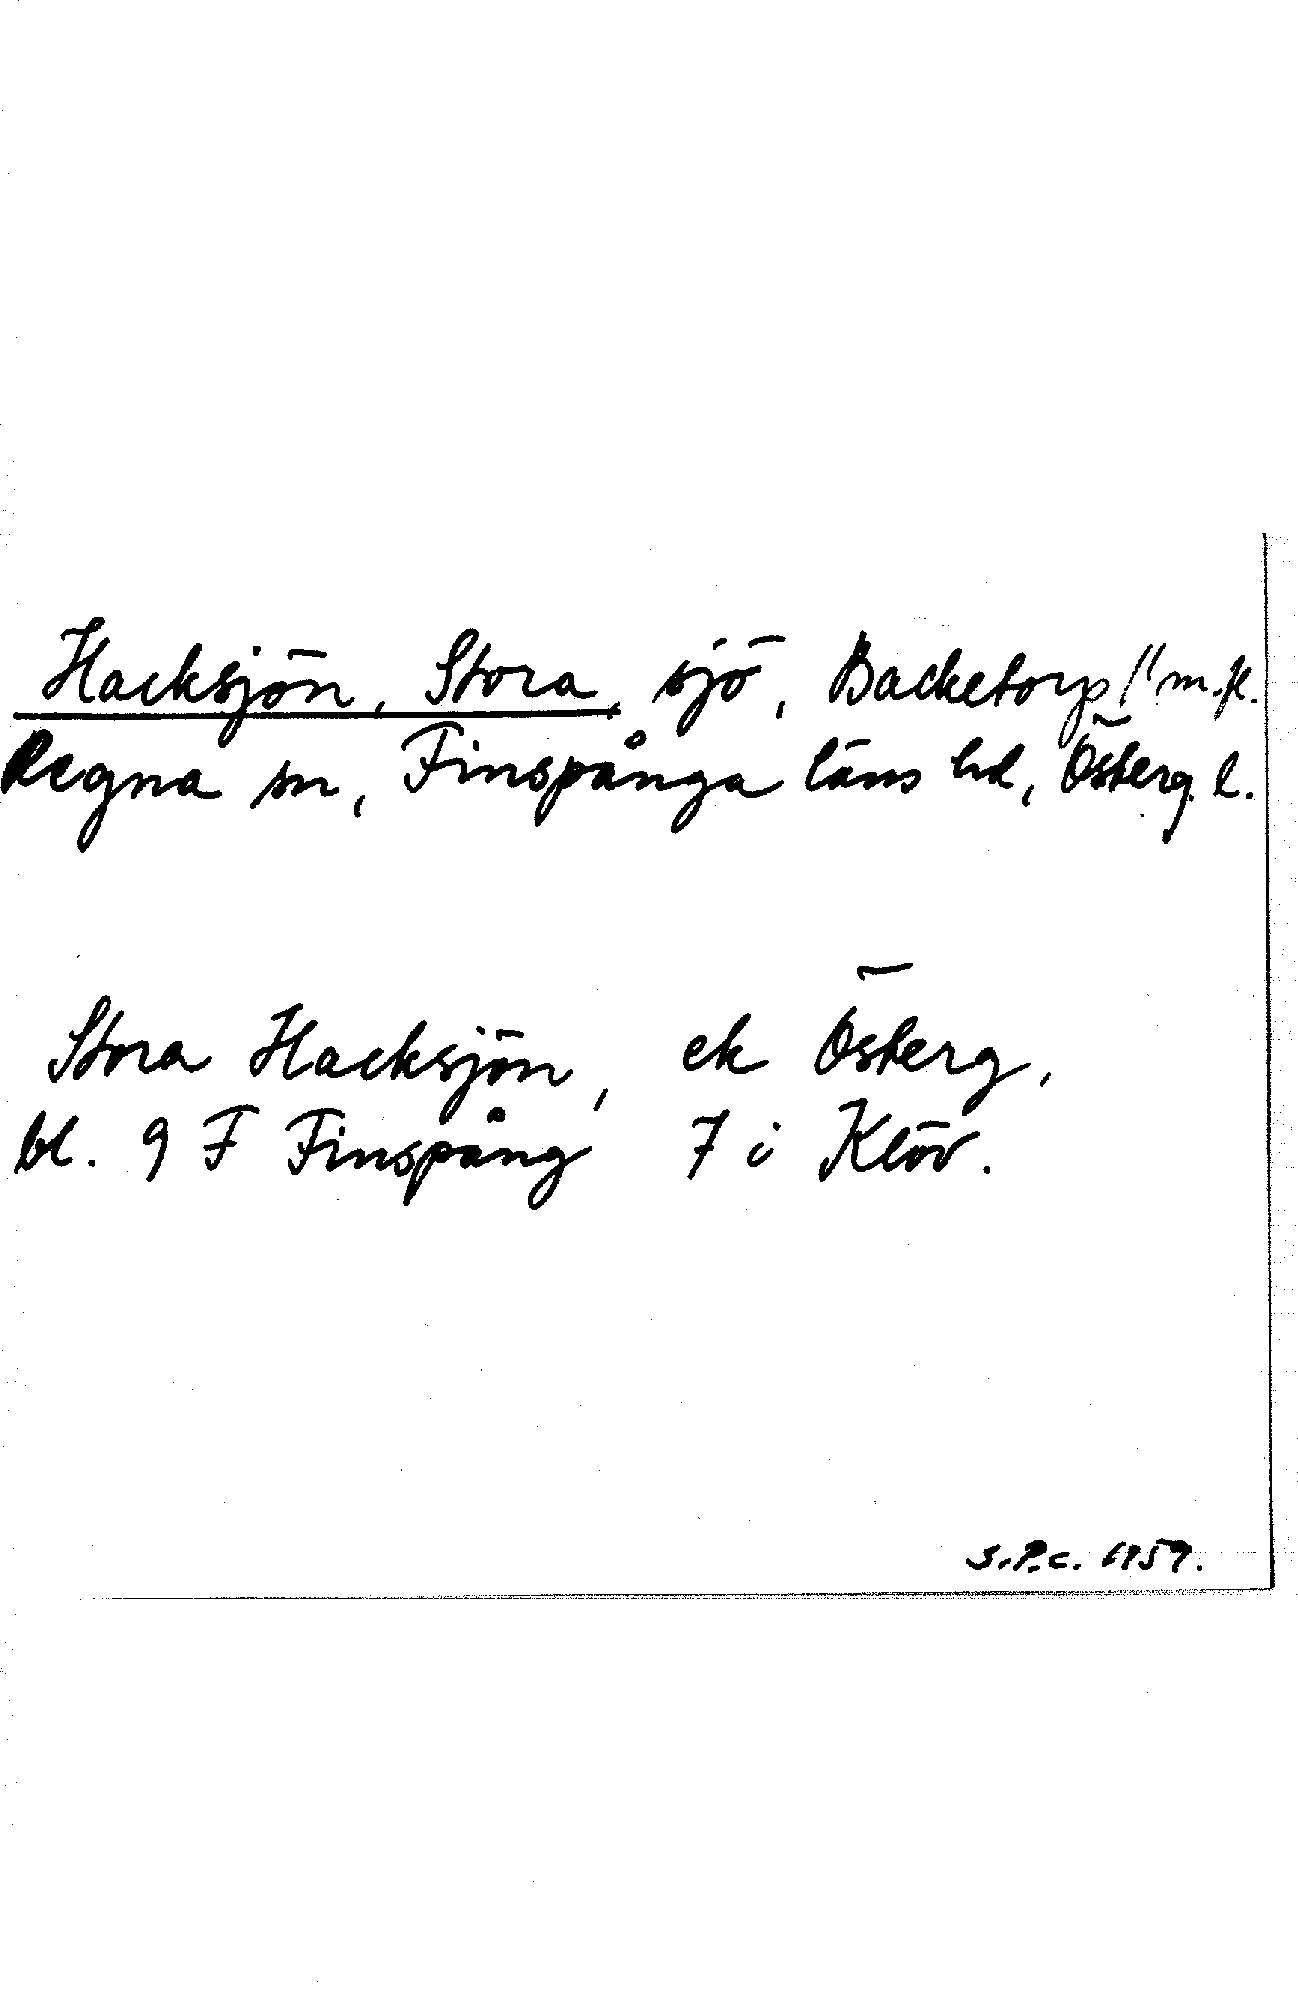 Hacksjön, Stora, sjö, Backetorp // m.fl.
Regna sn, Finspånga läns hd, Österg. l.
Stora Hacksjön, ek Österg,
bl. 9 F Finspång 7 i Klöv.
S.P.C. 1959.